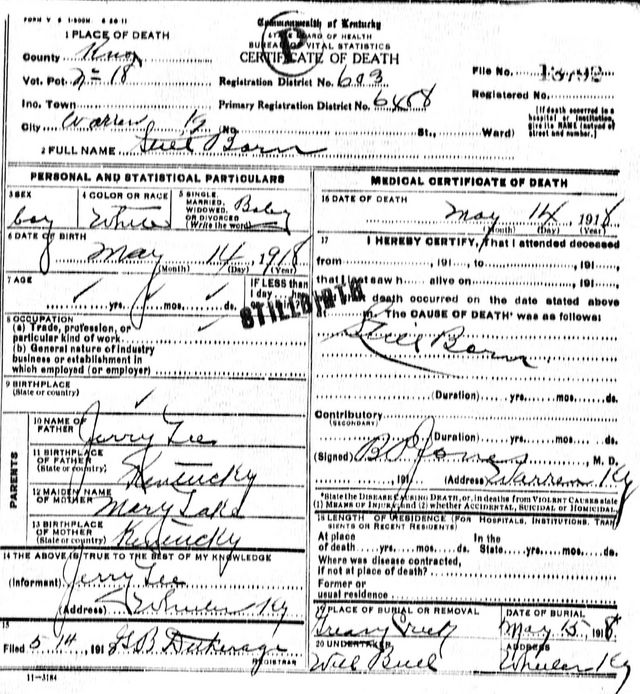 FORM V S 1-500M 6 20 11
Commonwealth of Kentucky
STATE BOARD OF HEALTH
BUREAU OF VITAL STATISTICS
CERTIFICATE OF DEATH
P
1 PLACE OF DEATH
County Knox
Vot. Pct. No 18
Registration District No. 603
File No. 13792
Inc. Town
Primary Registration District No. 6458
Registered No.
City Warren Ky No. St., Ward)
[If death occurred in a hospital or institution, give its NAME instead of street and number.]
2 FULL NAME Still Born
PERSONAL AND STATISTICAL PARTICULARS
3 SEX boy
4 COLOR OR RACE White
5 SINGLE, MARRIED, WIDOWED, OR DIVORCED (Write the word) Baby
6 DATE OF BIRTH
May 14, 1918
(Month) (Day) (Year)
7 AGE
yrs. mos. ds.
IF LESS than
1 day
STILLBIRTH
8 OCCUPATION
(a) Trade, profession, or
particular kind of work
(b) General nature of industry
business or establishment in
which employed (or employer)
9 BIRTHPLACE
(State or country)
PARENTS
10 NAME OF FATHER Jerry Lee
11 BIRTHPLACE OF FATHER (State or country) Kentucky
12 MAIDEN NAME OF MOTHER Mary
13 BIRTHPLACE OF MOTHER (State or country) Kentucky
14 THE ABOVE IS TRUE TO THE BEST OF MY KNOWLEDGE
(Informant) Jerry Lee
(Address) Wheeler Ky
15
Filed 5 14, 191 8 G B
REGISTRAR
11-3184
MEDICAL CERTIFICATE OF DEATH
16 DATE OF DEATH
May 14, 1918
(Month) (Day) (Year)
17 I HEREBY CERTIFY, That I attended deceased
from , 191 , to , 191 ,
that I last saw h alive on , 191 ,
death occurred on the date stated above
m. The CAUSE OF DEATH* was as follows:
Still Born
(Duration) yrs. mos. ds.
Contributory
(SECONDARY)
(Duration) yrs. mos. ds.
(Signed) B. Jones, M. D.
, 191 (Address) Warren Ky
*State the DISEASE CAUSING DEATH, or, in deaths from VIOLENT CAUSES state
(1) MEANS OF INJURY; and (2) whether ACCIDENTAL, SUICIDAL or HOMICIDAL.
18 LENGTH OF RESIDENCE (FOR HOSPITALS, INSTITUTIONS, TRANSIENTS OR RECENT RESIDENTS)
At place of death yrs. mos. ds. In the State yrs. mos. ds.
Where was disease contracted,
if not at place of death?
Former or
usual residence
19 PLACE OF BURIAL OR REMOVAL
DATE OF BURIAL
May 15, 1918
20 UNDERTAKER
Will Buell
ADDRESS
Wheeler Ky